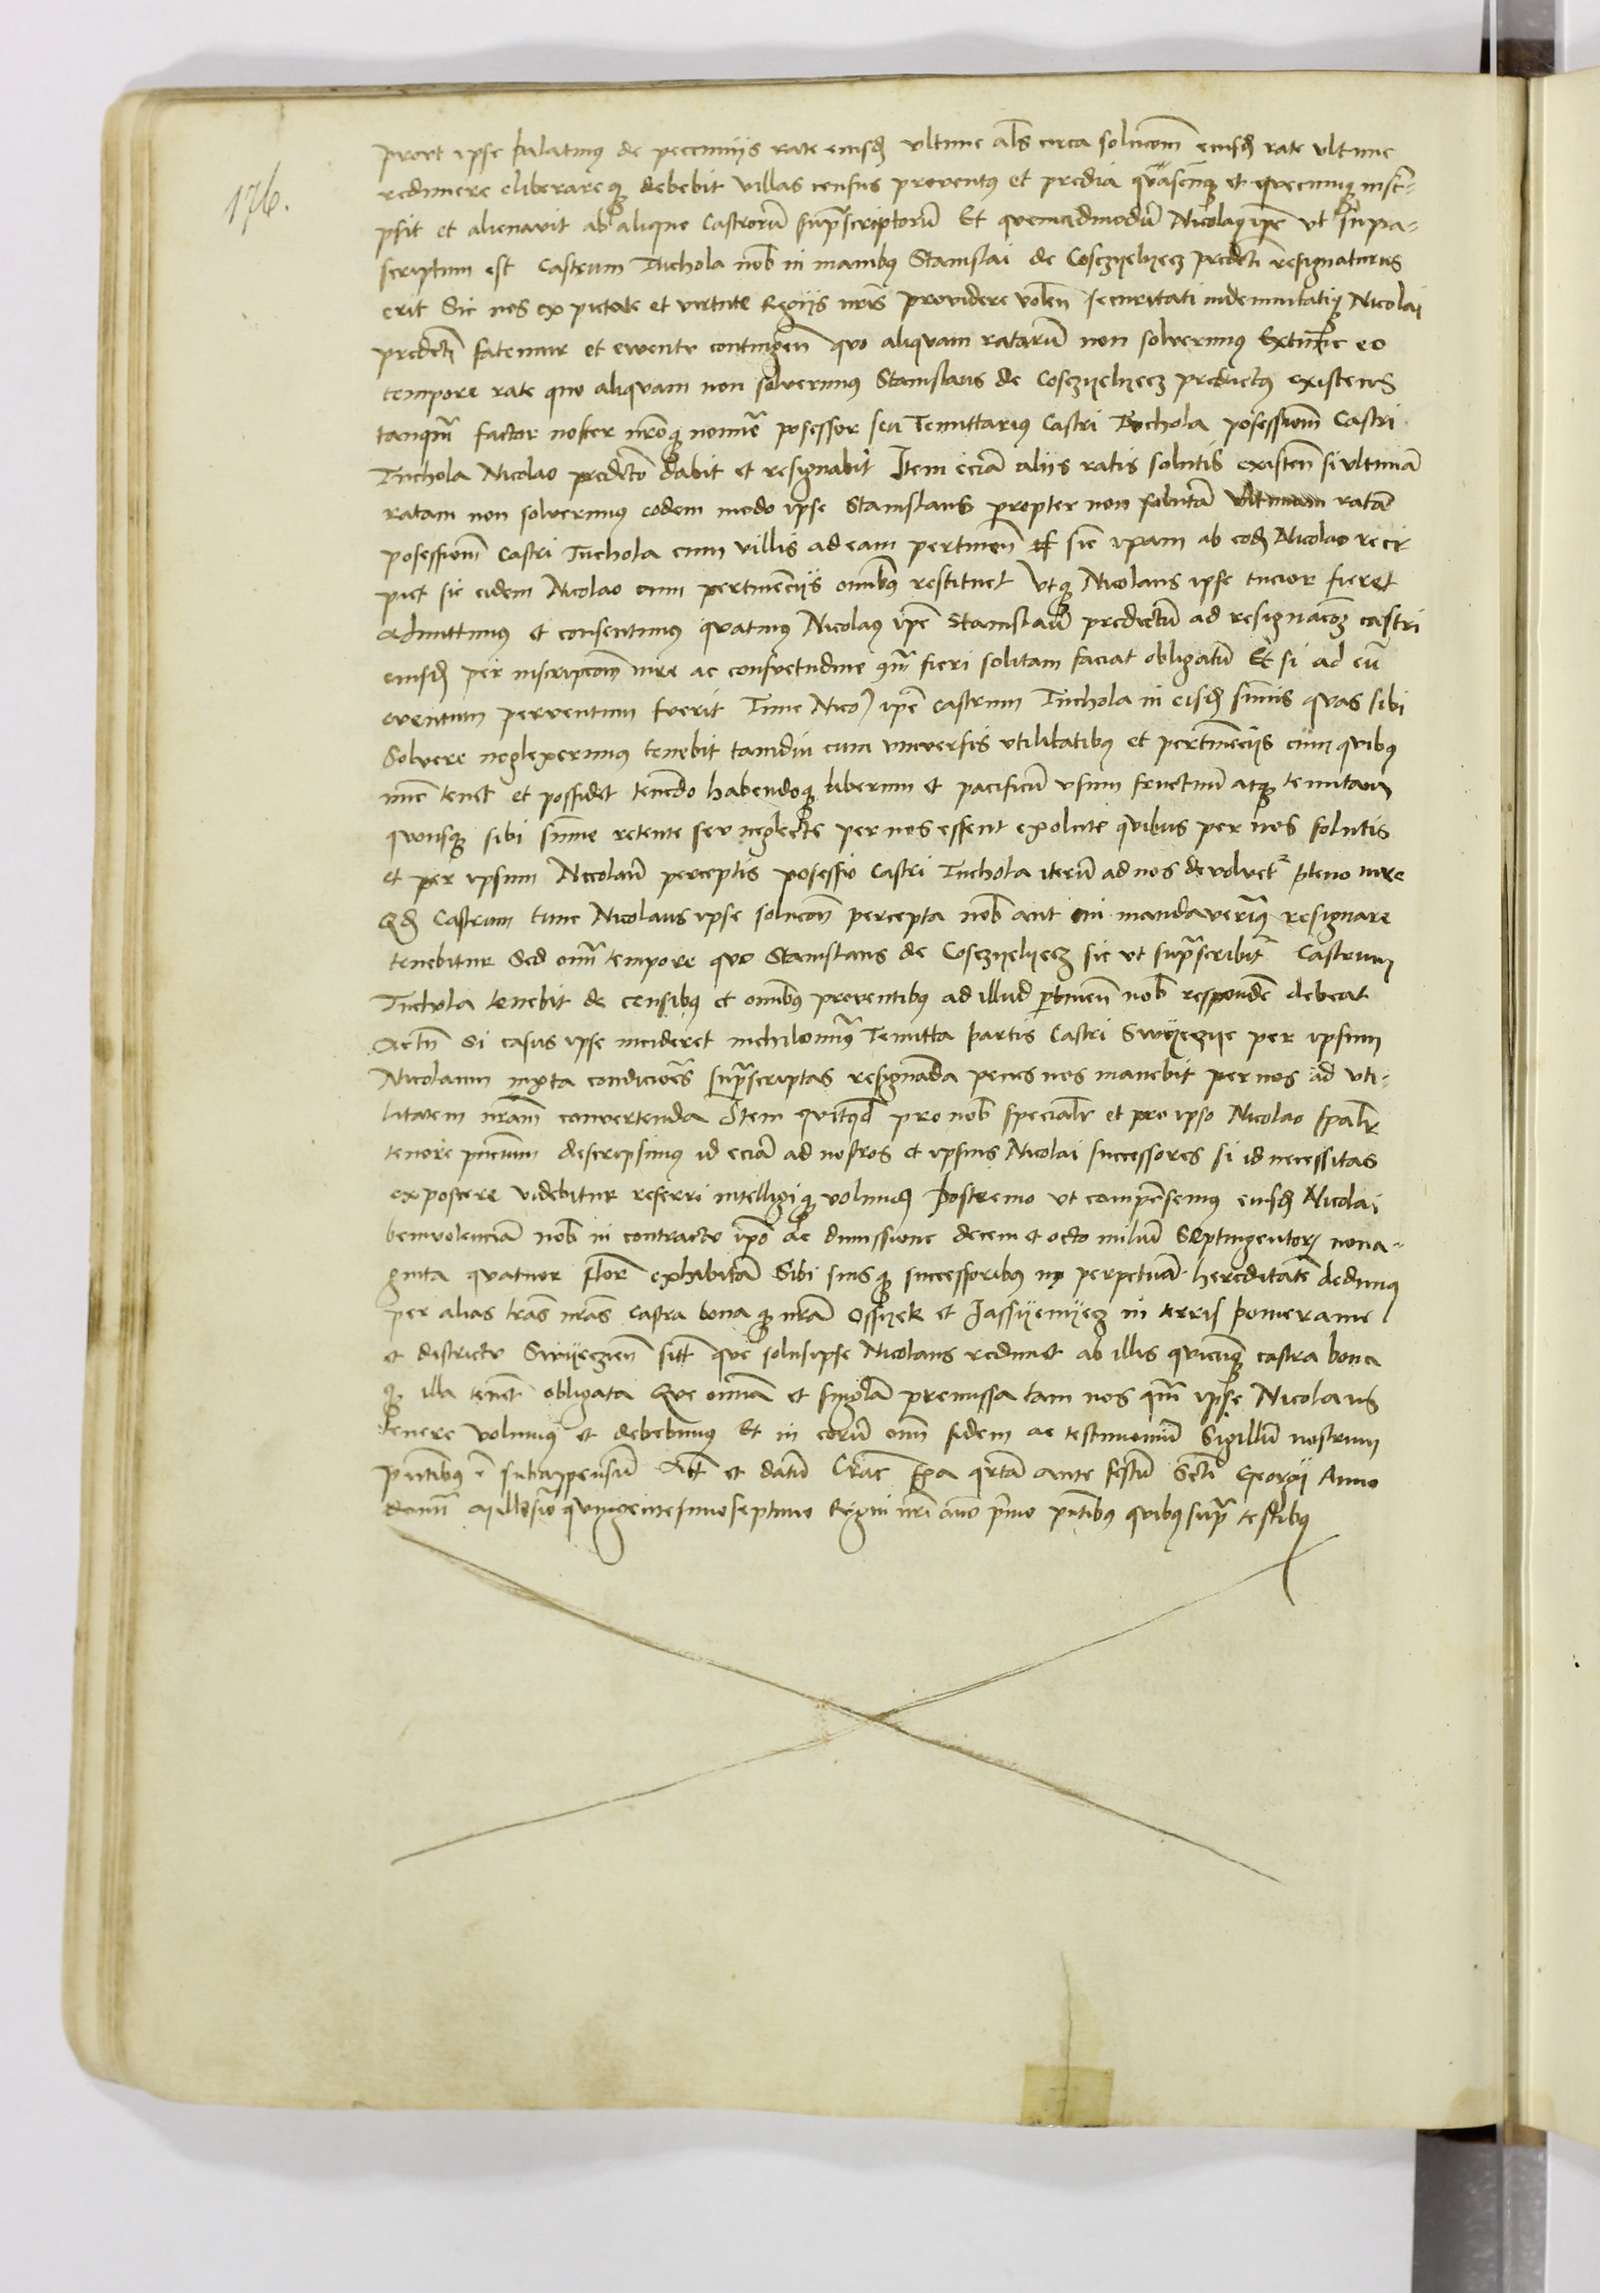 176.
prout ipse palatinus de peccuniis rate eiusd ultime als circa solucom eiusd rate ultime
redimere eliberareq debebit villas census proventus et predia quascunq et quecunq inscri-
psit et alienavit ab aliquo Castrorum suprascriptorum Et quemadmodum Nicolaus ipe ut supra-
scriptum est Castrum Tuchola nob in manibus Stanislai de Cosczyelyecz predicti resignaturus
erit Sic nos ex pietate et virtute Regiis nris providere volen securitati indemnitatiq Nicolai
predicti fatemur et evente contingen quo aliquam ratarum non solverimus Extunc eo
tempore rate quo aliquam non solverimus Stanislaus de Cosczyelyecz predictus existens
tanqm factor noster nroq nomine posessor seu Tenuttarius Castri Tuchola posessiom Castri
Tuchola Nicolao predicto dabit et resignabit Item eciam aliis ratis solutis existen si ultimam
ratam non solverimus eodem modo ipse Stanislaus propter non solutam ultimam ratam
posessiom Castri Tuchola cum villis ad eam pertinen sic ipam ab eod Nicolao reci
piet sic eidem Nicolao cum pertinenciis omnibus restituet Utq Nicolaus ipse tucior fieret
admittimus et consentimus quatinus Nicolaus ipe Stanislaum predictum ad resignacom castri
eiusd per inscripcom iure ac consuetudine qm fieri solitam faciat obligatum Et si ad eum
eventum perventum fuerit Tunc Nico ipe castrum Tuchola in eisd summis quas sibi
Solvere neglexerimus tenebit tamdiu cum universis utilitatibus et pertinenciis cum quibus
nunc tenet et possidet tenendo habendoq liberum et pacificum usum fructum atq tenutam
quousq sibi summe retente seu neglecte per nos essent exolute quibus per nos solutis
et per ipsum Nicolaum perceptis posessio Castri Tuchola iterum ad nos devolvetr pleno iure
Qd Castrum tunc Nicolaus ipse solucom percepta nob aut cui mandaverimus resignare
tenebitur Sed omni tempore quo Stanislaus de Cosczyelyecz sic ut suprascribitr Castrum
Tuchola tenebit de censibus et omnibus proventibus ad illud ptinen nob respondere debeat
Actn Si casus ipse incideret nichilominus Tenutta partis Castri Swyeczye per ipsum
Nicolaum iuxta condiciones suprascriptas resignanda penes nos manebit per nos ad uti-
litatem nram convertenda Item quitqd pro nob specialr et pro ipso Nicolao spalr
tenore pncium descripsimus id eciam ad nostros et ipsius Nicolai successores si id necessitas
exposcere videbitur referri intelligiq volumus Postremo ut compensemus eiusd Nicolai
benivolenciam nob in contractu ipo de dimissione decem et octo milium Septingentor nona-
ginta quatuor flor exhibitam Sibi suisq successoribus in perpetuam hereditatem dedimus
per alias lras nras castra bona q nra Ossyek et Jassyenyecz in terris pomeranie
et districtu Swyeczien sitt que solus ipse Nicolaus redimet ab illis quicunq castra bona
q illa tenet obligata Que omnia et singula premissa tam nos qm ipse Nicolaus
tenere volumus et debebimus Et in eorum omn fidem ac testimonium Sigillum nostrum
pntibus e subappensum Act et datum Crac fera qrta ante festum Scti Georgii Anno
domini Millesimo quingentesimoseptimo Regni nri anno primo pntibus quibus supra testibus